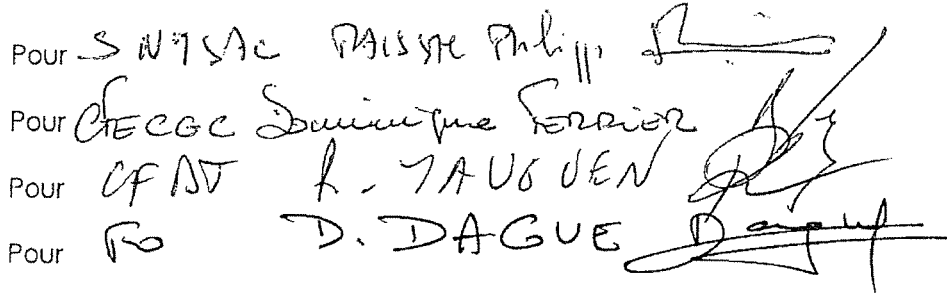 Pour SNISAC Philipp
Pour CFECGC Dominique FERRIER
Pour CFDT R.
Pour FO D. DAGUE